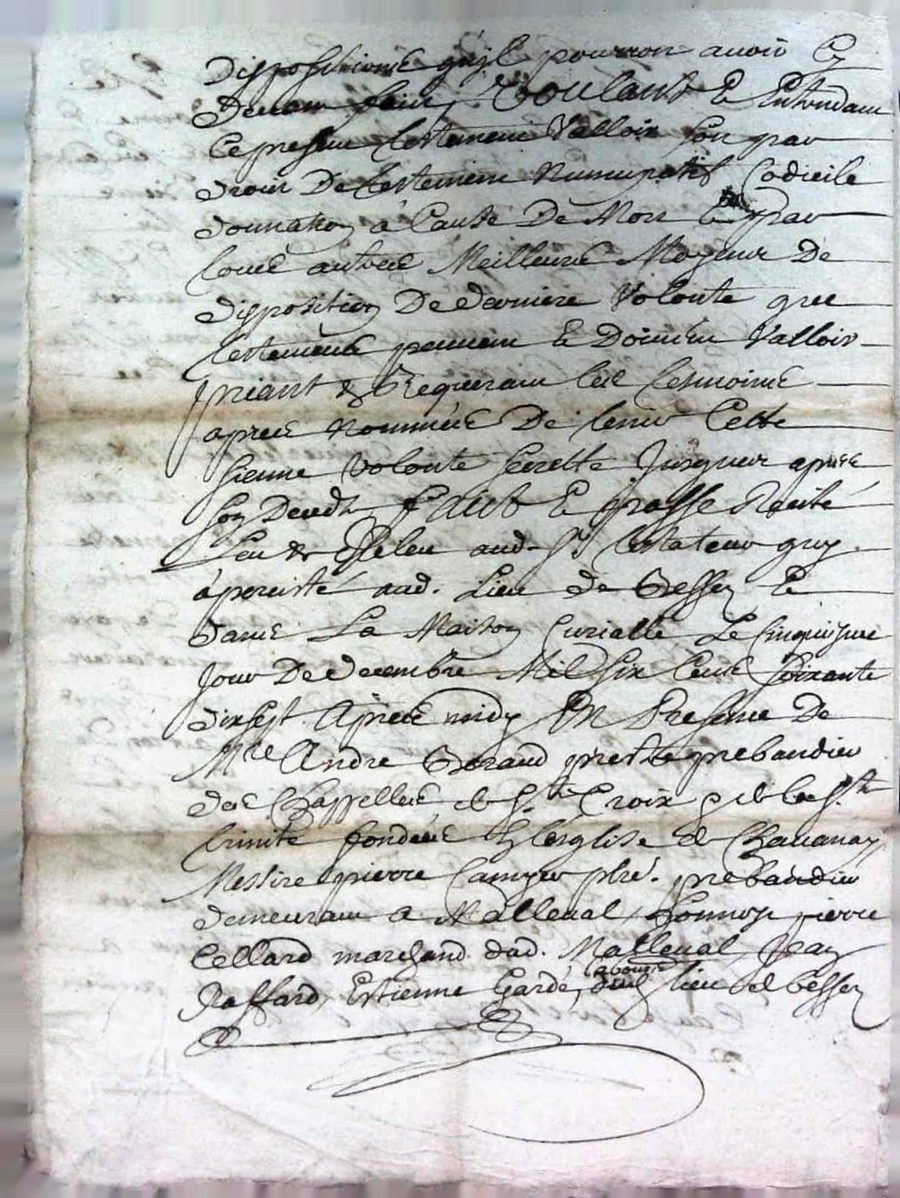 dispositions qu'il pourroit avoir cy
devant fait, Voulant & Entendant
Ce present testament Valloir soit par
droit De testement Nuncupatif Codicile
donnation à Cause De Mort & par
toute autres Meilleure Moyeur De
disposition De derniere Volonte que
testaments peuvent & Doivent Valloir
priant & Requerant les tesmoins
apres nommées De tenir Cette
sienne Volonte secrette Jusques apres
son Deceds fait & passe Recité
leu & Releu aud. Sr testateur quy
à percisté aud. Lieu de Bessey &
dans La Maison Curialle Le Cinquiesme
Jour De decembre Mil six Cens Soixante
dixsept Apres midy En Presence De
Mre Andre Beraud prestre prebandier
des Chappelles de Ste Croix & de la Ste
trinité fondées En leglise de Chavanay
Messire pierre pbre. prebandier
demeurant a Malleval honnor pierre
Cellard marchand dud. Malleval Jean
Raffard, Estienne Gardé, laboure dud lieu de bessey